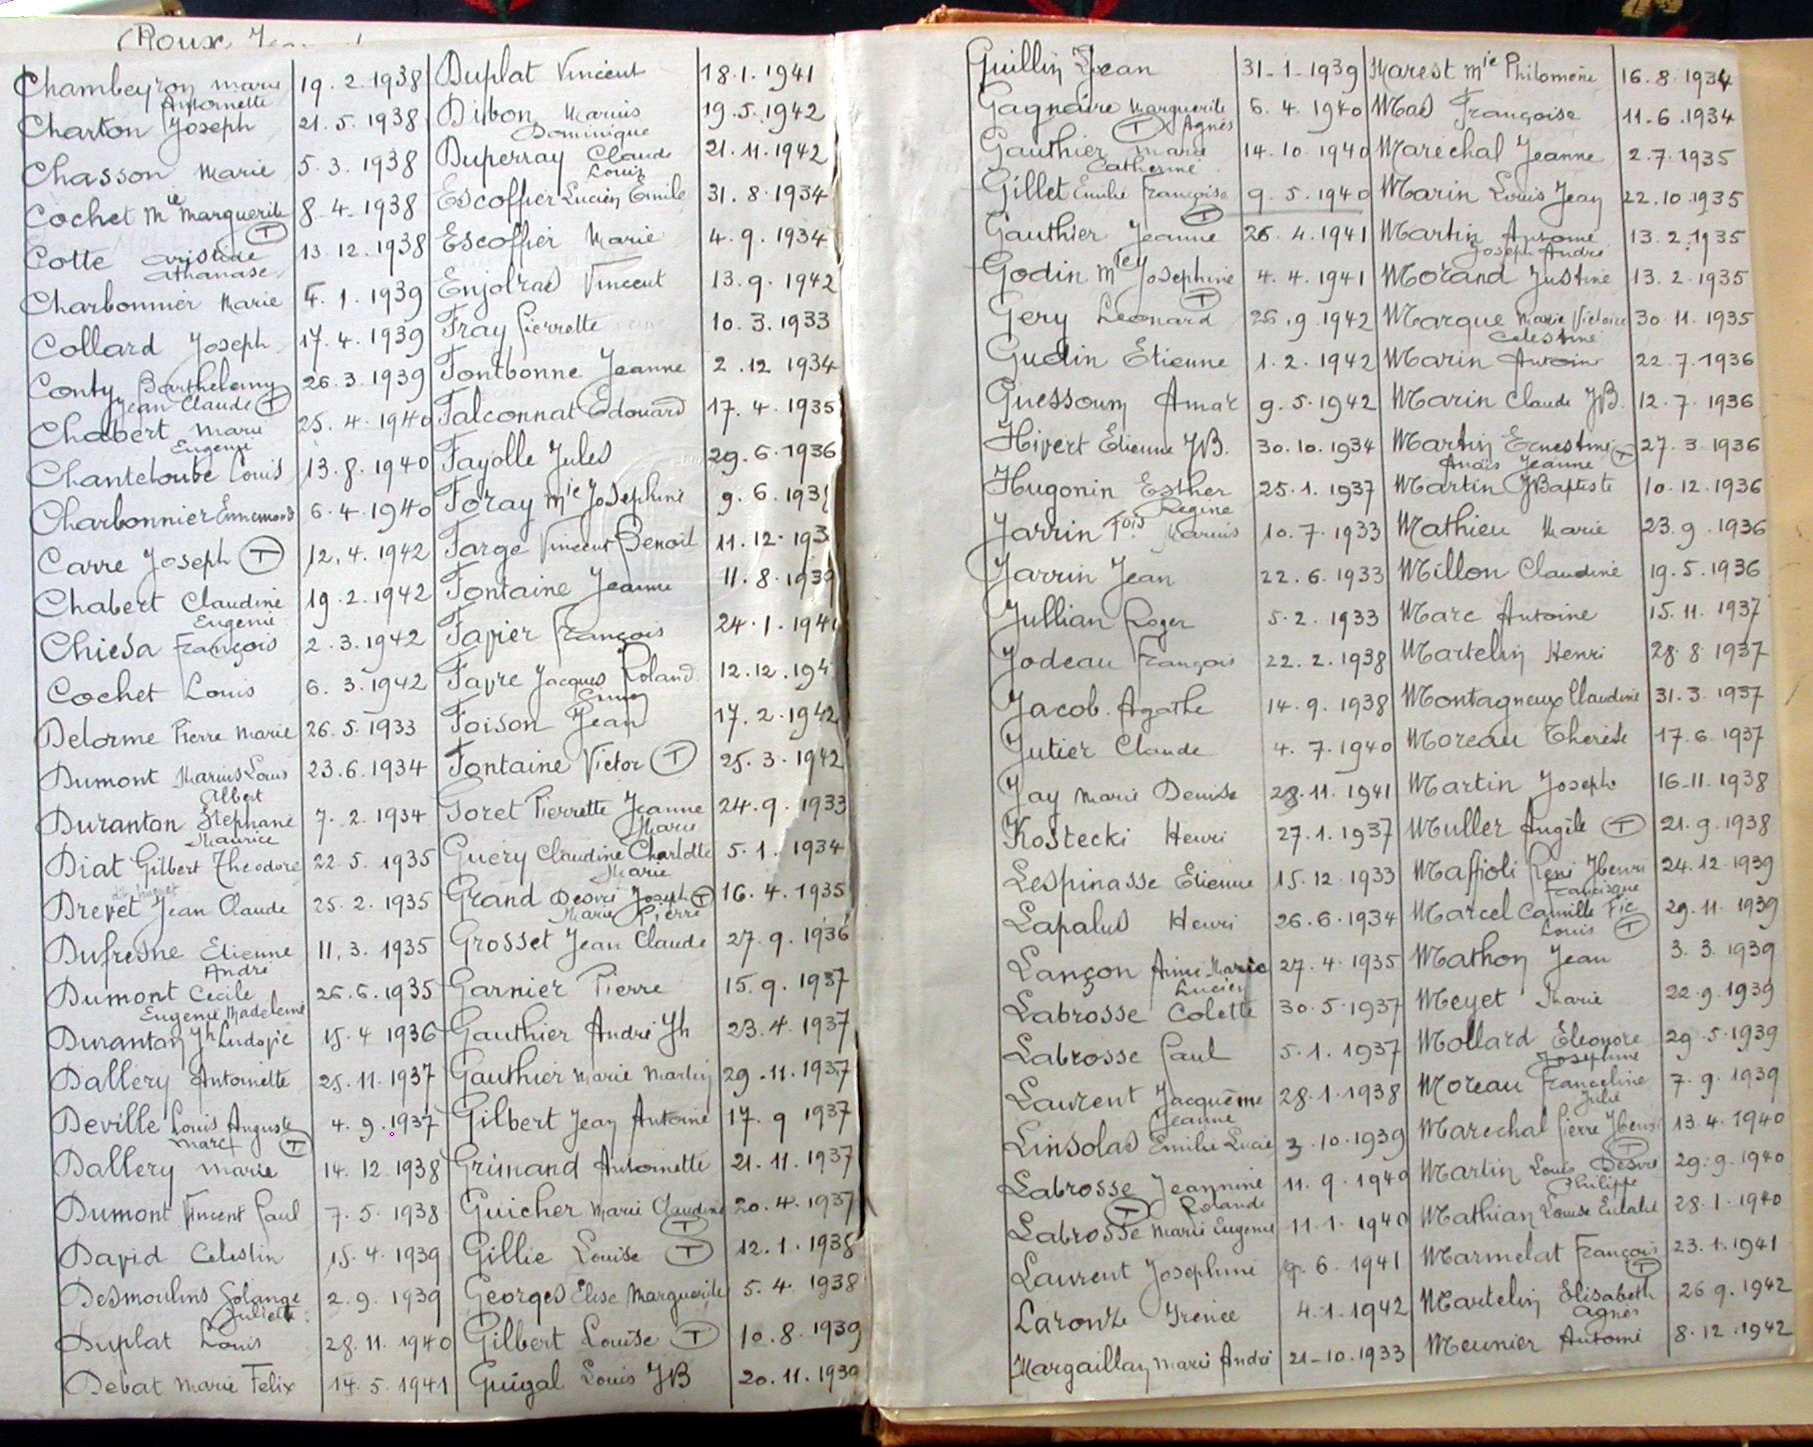 (Roux, J
Chambeyron Marie 19.2.1938
Antoinette
Charton Joseph 21.5.1938
Chasson Marie 5.3.1938
Cochet Mie Marguerite 8.4.1938
T
Cotte Aristide 13.12.1938
Athanase
Charbonnier Marie 4.1.1939
Collard Joseph 17.4.1939
Conty Barthelemy 26.3.1939
Jean Claude T
Chabert Marie 25.4.1940
Eugenie
Chanteloube Louis 13.8.1940
Charbonnier Ennemond 6.4.1940
Carre Joseph T 12.4.1942
Chabert Claudine 19.2.1942
Eugenie
Chiesa François 2.3.1942
Cochet Louis 6.3.1942
Delorme Pierre Marie 26.5.1933
Dumont Marius Louis 23.6.1934
Albert
Duranton Stephane 7.2.1934
Maurice
Diat Gilbert Theodore 22.5.1935
Drevet Jean Claude 25.2.1935
Dufresne Etienne 11.3.1935
André
Dumont Cecile 26.6.1935
Eugenie Madeleine
Duranton Jh Ludovic 15.4 1936
Dallery Antoinette 25.11.1937
Deville Louis Auguste 4.9.1937
Marc T
Dallery Marie 14.12.1938
Dumont Vincent Paul 7.5.1938
David Celestin 15.4.1939
Desmoulins Solange 2.9.1939
Juliette
Duplat Louis 28.11.1940
Debat Marie Felix 14.5.1941
Duplat Vincent 18.1.1941
Dibon Marius 19.5.1942
Dominique
Duperray Claude 21.11.1942
Louis
Escoffier Lucien Emile 31.8.1934
Escoffier Marie 4.9.1934
Enjolras Vincent 13.9.1942
Fray Pierrette 10.3.1933
Fontbonne Jeanne 2.12 1934
Falconnat Edouard 17.4.1935
Fayolle Jules 29.6.1936
Foray Mie Josephine 9.6.193
Farge Vincent Benoit 11.12.193
Fontaine Jeanne 11.8.1939
Favier François 24.1.194
Favre Jacques Roland 12.12.194
Foison Jean 17.2.1942
Fontaine Victor T 25.3.1942
Goret Pierrette Jeanne 24.9.1933
Marie
Guéry Claudine Charlotte 5.1.1934
Marie
Grand Desiré Joseph T 16.4.1935
Marie Pierre
Grosset Jean Claude 27.9.1936
Garnier Pierre 15.9.1937
Gauthier André Jh 23.4.1937
Gauthier Marie Martin 29.11.1937
Gilbert Jean Antoine 17.9 1937
Grimand Antoinette 21.11.1937
Guicher Marie Claudine 20.4.1937
T
Gillie Louise T 12.1.1938
Georges Elise Marguerite 5.4.1938
Gilbert Louise T 10.8.1939
Guigal Louis JB 20.11.1939
Guillin Jean 31-1-1939
Gagnaire Marguerite 6.4.1940
T Agnès
Gauthier Marie 14.10.1940
Catherine
Gillet Emilie Françoise 9.5.1940
T
Gauthier Jeanne 26.4.1941
Godin Mie Josephine 4.4.1941
T
Gery Leonard 26.9.1942
Gudin Etienne 1.2.1942
Guessoum Amar 9.5.1942
Hivert Etienne JB. 30.10.1934
Hugonin Esther 25.1.1937
Regine
Jarrin Fois Marius 10.7.1933
Jarrin Jean 22.6.1933
Jullian Roger 5.2.1933
Jodeau François 22.2.1938
Jacob Agathe 14.9.1938
Jutier Claude 4.7.1940
Jay Marie Denise 28.11.1941
Kostecki Henri 27.1.1937
Lespinasse Etienne 15.12.1933
Lapalus Henri 26.6.1934
Lançon Aimé Marie 27.4.1935
Lucien
Labrosse Colette 30.5.1937
Labrosse Paul 5.1.1937
Laurent Jacqueme 28.1.1938
Jeanne
Linsolas Emilie Lucie 3.10.1939
Labrosse Jeannine 11.9.1940
T Rolande
Labrosse Marie Eugenie 11.1.1940
Laurent Josephine 9.6.1941
Laronze Irenée 4.1.1942
Margaillan Marie André 21-10.1933
Marest Mie Philomene 16.8.1934
Mas Françoise 11.6.1934
Marechal Jeanne 2.7.1935
Marin Louis Jean 22.10.1935
Martin Antoine 13.2.1935
Joseph André
Morand Justine 13.2.1935
Marque Marie Victoire 30.11.1935
Celestine
Marin Antoine 22.7.1936
Marin Claude JB. 12.7.1936
Martin Ernestine T 27.3.1936
Anaïs Jeanne
Martin JBaptiste 10.12.1936
Mathieu Marie 23.9.1936
Millon Claudine 19.5.1936
Marc Antoine 15.11.1937
Martelin Henri 28.8.1937
Montagneux Claudine 31.3.1937
Moreau Therèse 17.6.1937
Martin Joseph 16-11.1938
Muller Angèle T 21.9.1938
Maffioli René Henri 24.12.1939
Francisque
Marcel Camille Fic 29.11.1939
Louis T
Mathon Jean 3.3.1939
Meyet Marie 22.9.1939
Mollard Eleonore 29.5.1939
Josephine
Moreau Franceline 7.9.1939
Julie
Marechal Pierre Henri 13.4.1940
T
Martin Louis Desiré 29.9.1940
Philippe
Mathian Louise Eulalie 28.1.1940
Marmelat François 23.1.1941
T
Martelin Elisabeth 26 9.1942
Agnès
Meunier Antoine 8.12.1942